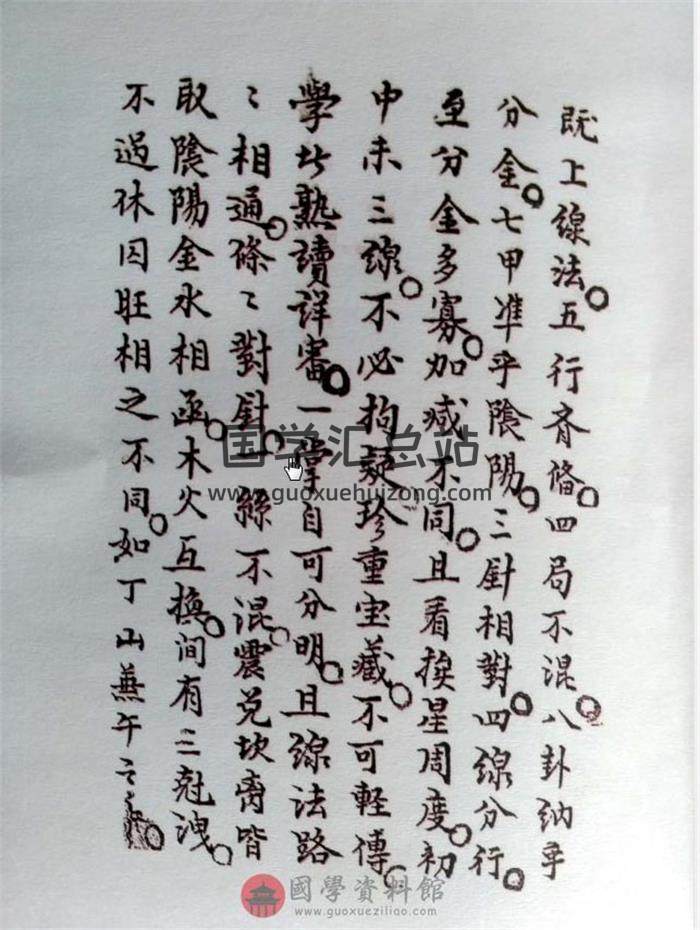 既上線法五行齊俻四局不混八卦納乎
分金七甲準乎陰陽三針相對四線分行
至分金多寡加减不同且看挨星周度初
中末三線不必拘疑珍重宝藏不可輕傳
學此熟讀詳審一掌自可分明且線法路
〻相通條〻對針一絲不混震兑坎离皆
取陰陽金水相函木火互換间有三尅洩
不過休囚旺相之不同如丁山蕪午
国学汇总站
www.guoxuehuizong.com
國學資料館
www.guoxueziliao.com